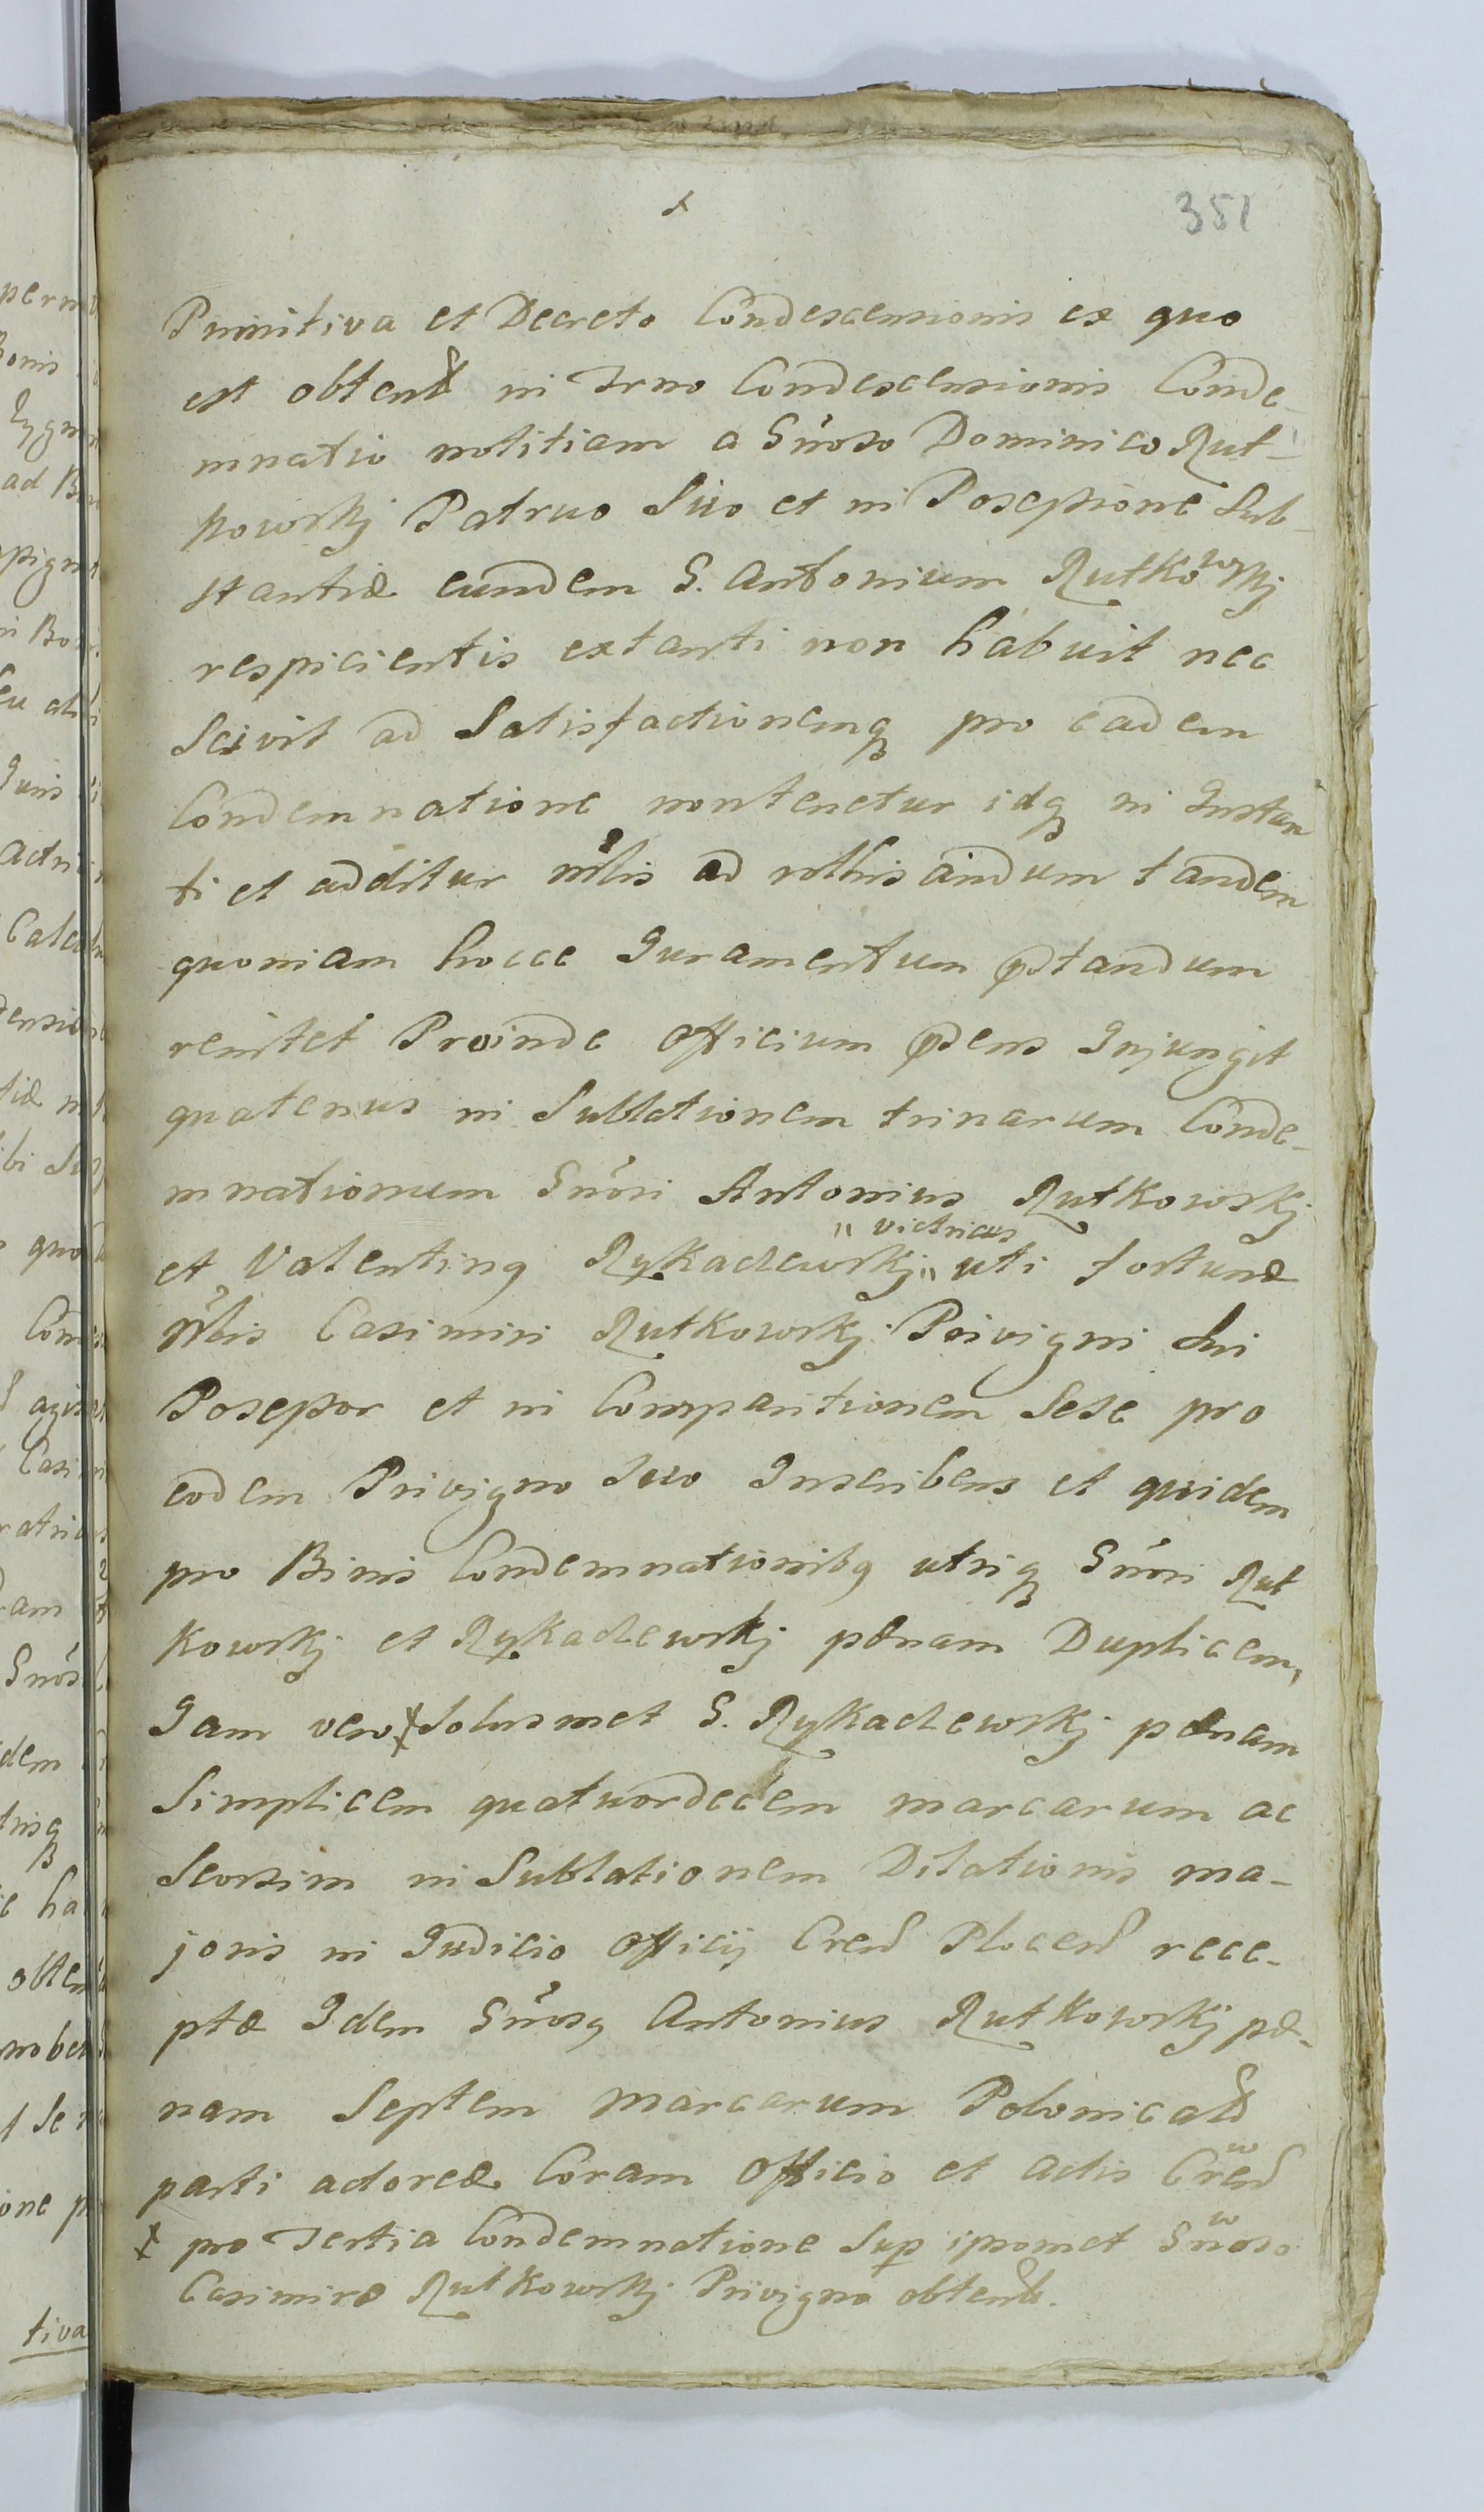 351
Punitiva et Decreto Condescensionis ex quo
est obtent in Trno Condescensionis Conde-
mnatio notitiam a Gnoso Dominico Rut-
kowskj Patruo Suo et in Possessione Sub-
stantiæ eundem G. Antonium Rutkowskj
respicientis extanti non habuit nec
Scivit ad Satisfactionemq pro eadem
Condemnatione nontenetur idq in Instan
ti et additur nblis ad rothisandum tandem
quoniam hocce Juramentum pstandum
renitet Proinde Officium pdens Injungit
quatenus in Sublationem trinarum Conde-
mnationum Gnosi Antonius Rutkowskj
et Valentinq Rykaczewskj " victricus " uti fortunæ
nblis Casimiri Rutkowskj Privigni Sui
Possessor et in Comparitionem Sese pro
eodem Privigno Suo Inscribens et quidem
pro Binis Condemnationibq utriq Gnosi Rut
kowskj et Rykaczewskj pænam Duplicem,
Jam vero ‡ Solusmet G. Rykaczewskj pænam
Simplicem quatuordecem marcarum ac
Seorsim in Sublationem Dilationis ma-
joris in Judicio Officij Crend Plocend rece-
ptæ Idem Gnosq Antonius Rutkowskj pæ-
nam Septem marcarum Polonicald
parti actoreæ Coram Officio et Actis Crend
‡ pro Tertia Condemnatione Sup ipsomet Gnoso
Casimiro Rutkowskj Privigno obtent.